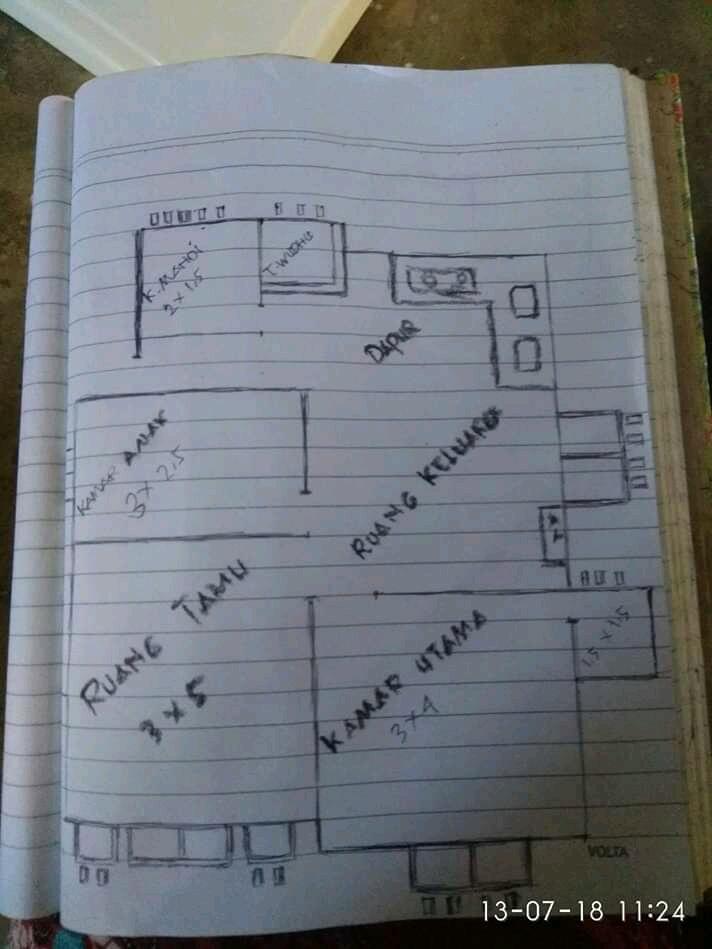 K. MANDI
2 x 1.5
T. WUDHU
DAPUR
KAMAR ANAK
3 x 2.5
RUANG KELUARGA
RUANG TAMU
3 x 5
KAMAR UTAMA
3x4
1.5 x 1.5
VOLTA
13-07-18 11:24